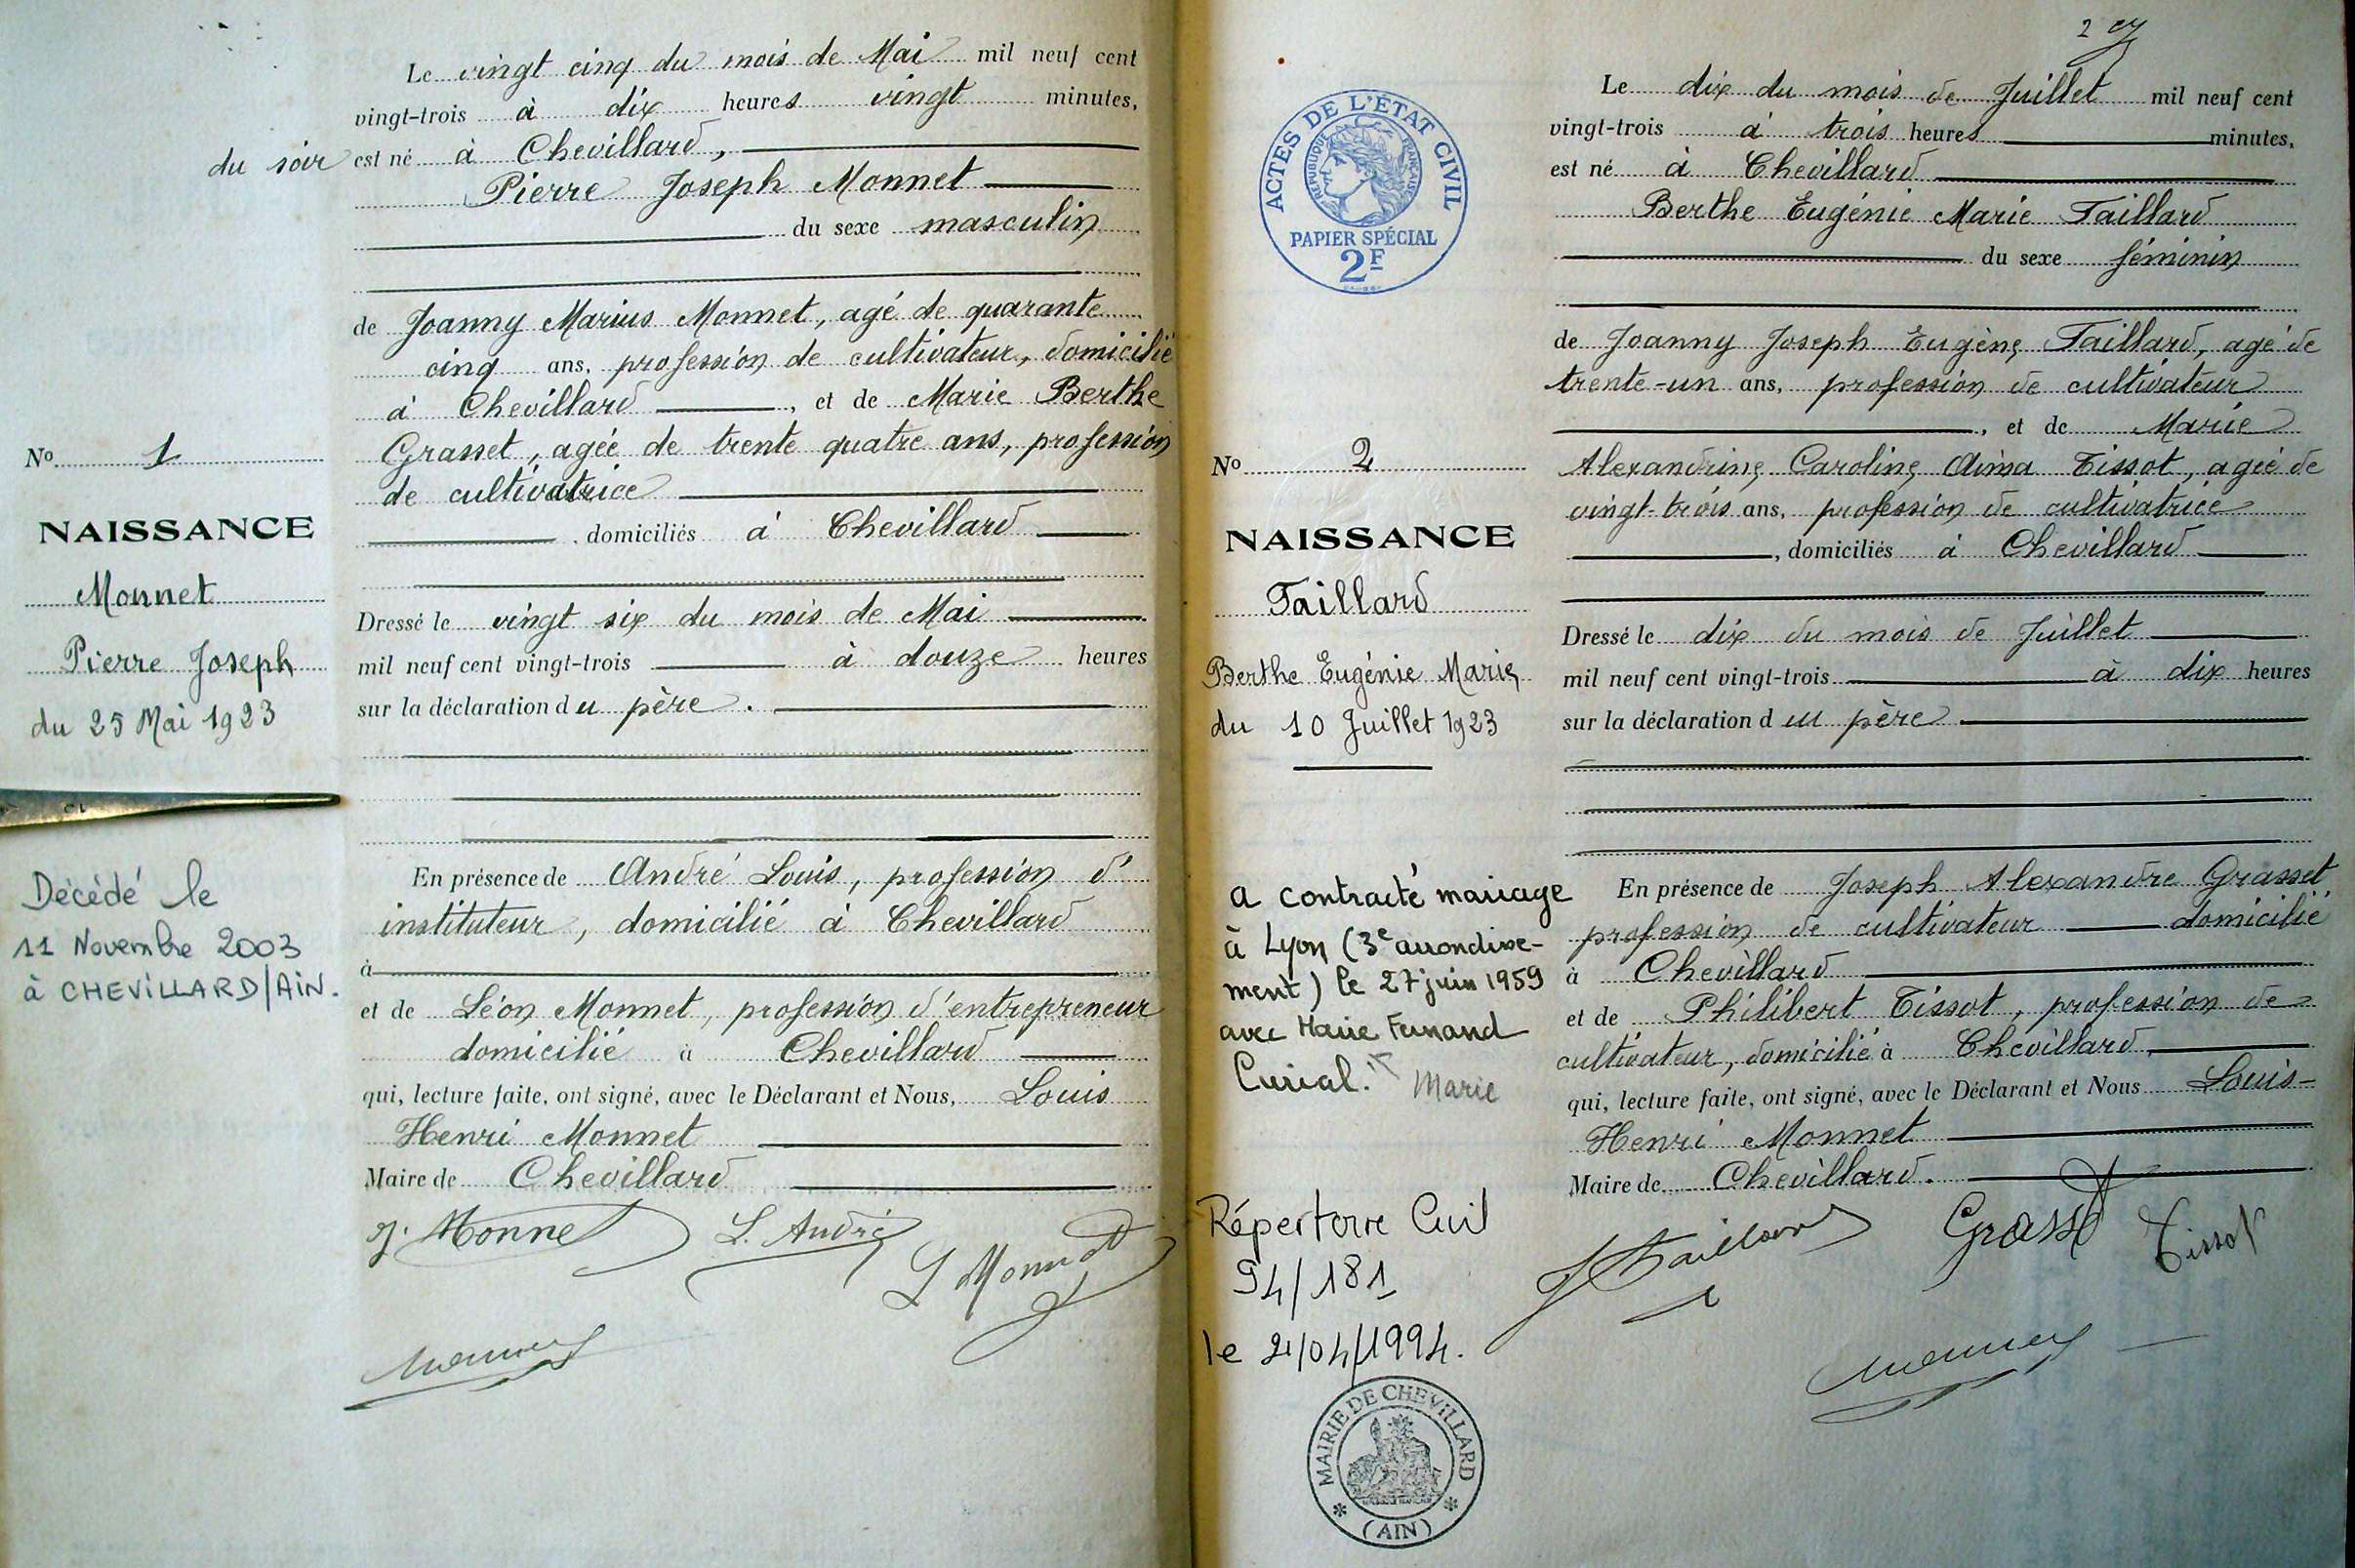 Le vingt cinq du mois de Mai mil neuf cent
vingt-trois à dix heures vingt minutes,
du soir est né à Chevillard,
Pierre Joseph Monnet
du sexe masculin
de Joanny Marius Monnet, agé de quarante
cinq ans, profession de cultivateur, domicilié
à Chevillard, et de Marie Berthe
Grasset, agée de trente quatre ans, profession
de cultivatrice
, domiciliés à Chevillard
Dressé le vingt six du mois de Mai
mil neuf cent vingt-trois à douze heures
sur la déclaration du père.
En présence de André Louis, profession d'
instituteur, domicilié à Chevillard
à
et de Léon Monnet, profession d'entrepreneur
domicilié à Chevillard
qui, lecture faite, ont signé, avec le Déclarant et Nous, Louis
Henri Monnet
Maire de Chevillard
J. Monnet L. André
L Monnet
Monnet
No 1
NAISSANCE
Monnet
Pierre Joseph
du 25 Mai 1923
Décédé le
11 Novembre 2003
à CHEVILLARD/AIN.
2
ACTES DE L'ÉTAT CIVIL
RÉPUBLIQUE FRANÇAISE
PAPIER SPÉCIAL
2F
No 2
NAISSANCE
Taillard
Berthe Eugénie Marie
du 10 Juillet 1923
a contracté mariage
à Lyon (3e arrondisse-
ment) le 27 juin 1959
avec Marie Fernand
Curial. Marie
Répertoire Civil
94/181
le 21/04/1994.
MAIRIE DE CHEVILLARD
(AIN)
Le dix du mois de Juillet mil neuf cent
vingt-trois à trois heures minutes,
est né à Chevillard
Berthe Eugénie Marie Taillard
du sexe féminin
de Joanny Joseph Eugène Taillard, agé de
trente-un ans, profession de cultivateur
, et de Marie
Alexandrine Caroline Aima Tissot, agée de
vingt-trois ans, profession de cultivatrice
, domiciliés à Chevillard
Dressé le dix du mois de Juillet
mil neuf cent vingt-trois à dix heures
sur la déclaration du père
En présence de Joseph Alexandre Grasset,
profession de cultivateur domicilié
à Chevillard
et de Philibert Tissot, profession de
cultivateur, domicilié à Chevillard,
qui, lecture faite, ont signé, avec le Déclarant et Nous Louis-
Henri Monnet
Maire de Chevillard.
J Taillard Grasset Tissot
Monnet